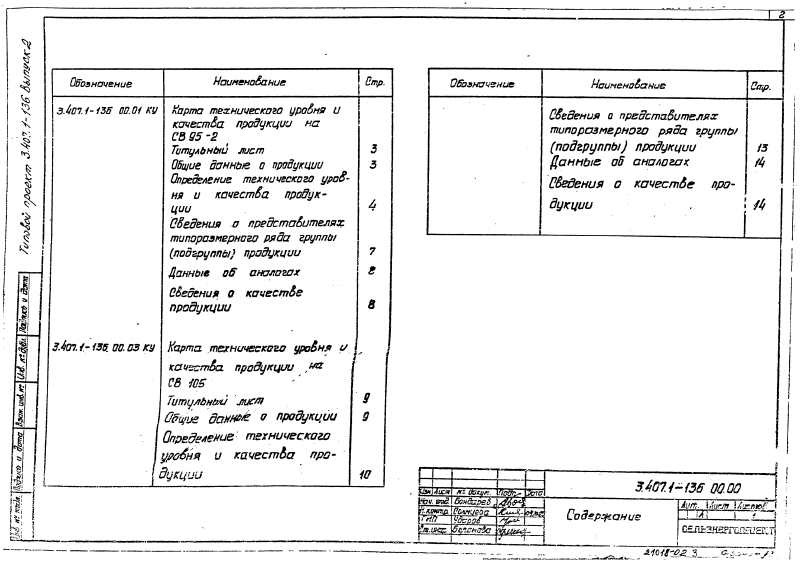 2
Типовой проект 3.407.1-136 Выпуск 2
Обозначение
Наименование
Стр.
3.407.1-136 00.01 КУ
Карта технического уровня и
качества продукции на
СВ 95-2
Титульный лист 3
Общие данные о продукции 3
Определение технического уров-
ня и качества продук-
ции 4
Сведения о представителях
типоразмерного ряда группы
(подгруппы) продукции 7
Данные об аналогах 8
Сведения о качестве
продукции 8
3.407.1-136 00.03 КУ
Карта технического уровня и
качества продукции на
СВ 105
Титульный лист 9
Общие данные о продукции 9
Определение технического
уровня и качества про-
дукции 10
Обозначение
Наименование
Стр.
Сведения о представителях
типоразмерного ряда группы
(подгруппы) продукции 13
Данные об аналогах 14
Сведения о качестве про-
дукции 14
Подпись и дата
Взам. инв. №
3.407.1-136 00.00
Содержание
Изм Лист № докум. Подп. Дата
Нач. отд. Бондарев
Н.контр.
ГИП Ударов
Лит. Лист Листов
1
СЕЛЬЭНЕРГОПРОЕКТ
21018-02 3